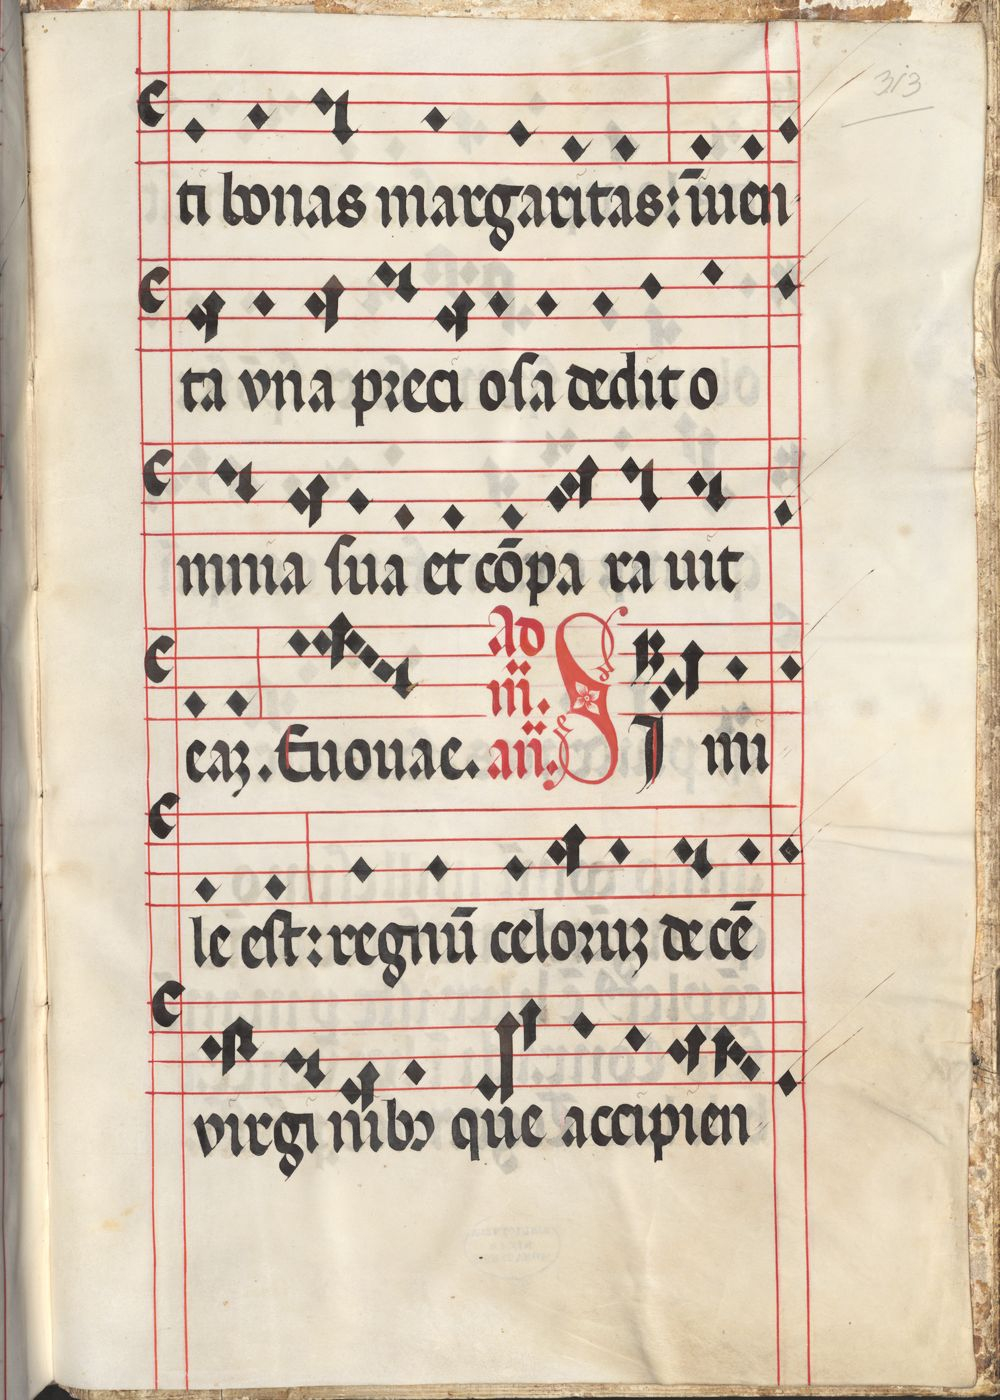 313
ti bonas margaritas: īuen
ta vna preci osa dedit o
mnia sua et cōpa ra uit
eaꝫ. Euouae. Ad iii. añ. SI mi
le est: regnū celoruꝫ de cē
virgi nibꝰ que accipien